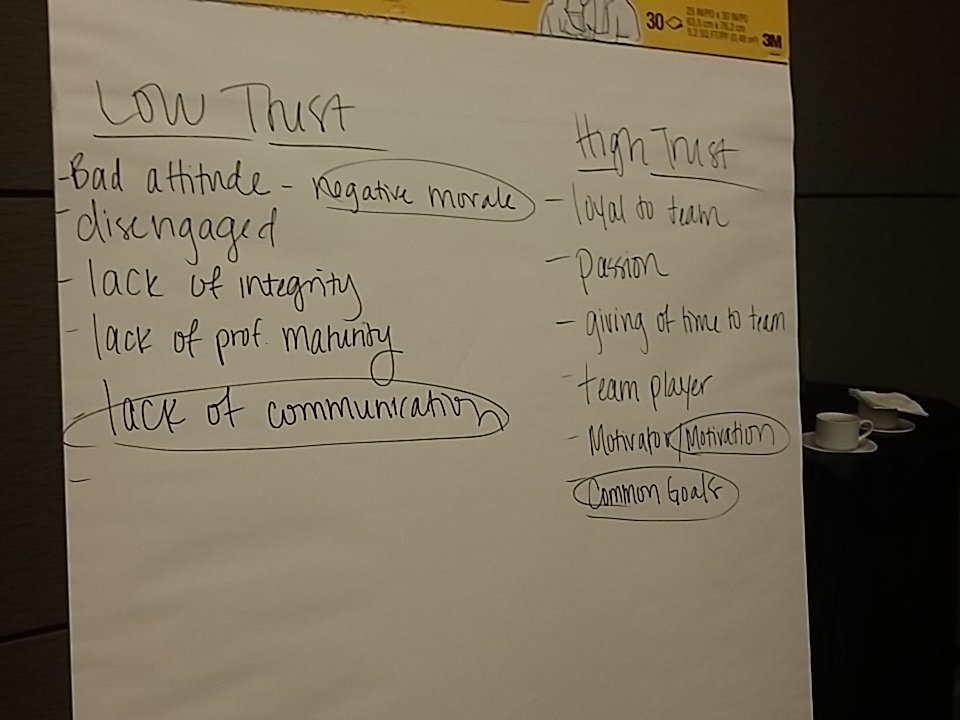 30
25 IN/PO x 30 IN/PO
63,5 cm x 76,2 cm
5.2 SQ.FT/PP (0,48 m²)
3M
Low Trust
-Bad attitude - negative morale
- disengaged
- lack of integrity
- lack of prof. maturity
- lack of communication
-
High Trust
- loyal to team
- passion
- giving of time to team
- team player
- Motivator/Motivation
- Common Goals